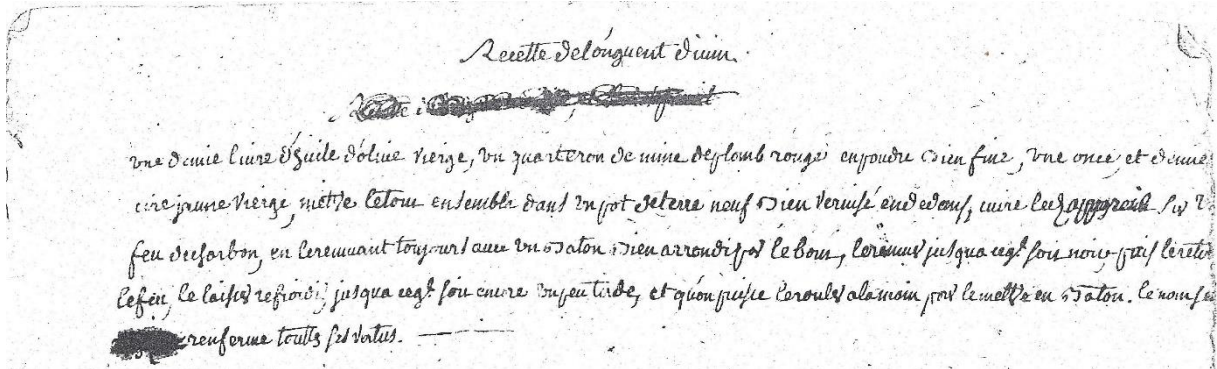 Recette de lónguent divin.
une demie livre d'huile d'ólive vierge, un quarteron de mine de plomb rouge en poudre bien fine, une once et demie
cire jaune vierge, mettre letout ensemble dans un pot de terre neuf bien vernissé endedans, cuire led. sur
feu decharbon, en leremuant toujours avec un baton bien arrondi par le bout, leremuer jusqua ceql. soit noir, puis
lefeu, le laisser refroidir jusqua ceql. soit encore unpeu tiede, et qu'on puisse lerouler alamain pour lemettre en baton. le nom
renferme toutes ses vertus.